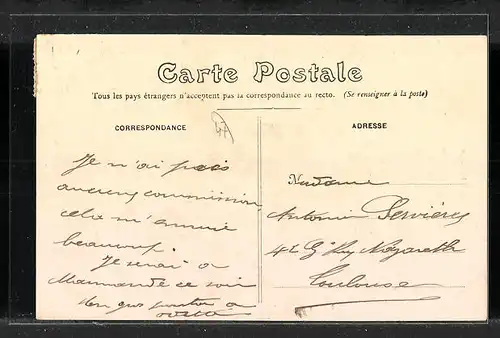 Carte Postale
Tous les pays étrangers n'acceptent pas la correspondance au recto. (Se renseigner à la poste)
CORRESPONDANCE
ADRESSE
Je n'ai pas
aucune commission
cela m'ennuie
beaucoup.
Je serai a
Marmande ce soir
a
Madame
Antonin Servières
42 Gde Rue Nazareth
Toulouse